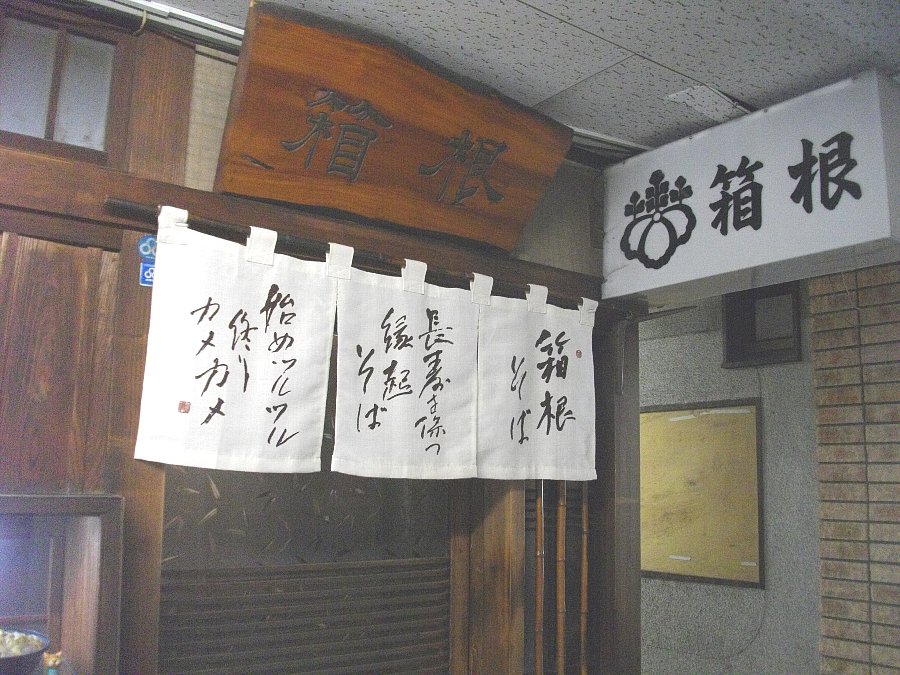 箱根
箱根
箱根
そば
長寿を保つ
縁起
そば
始めツルツル
終り
カメカメ